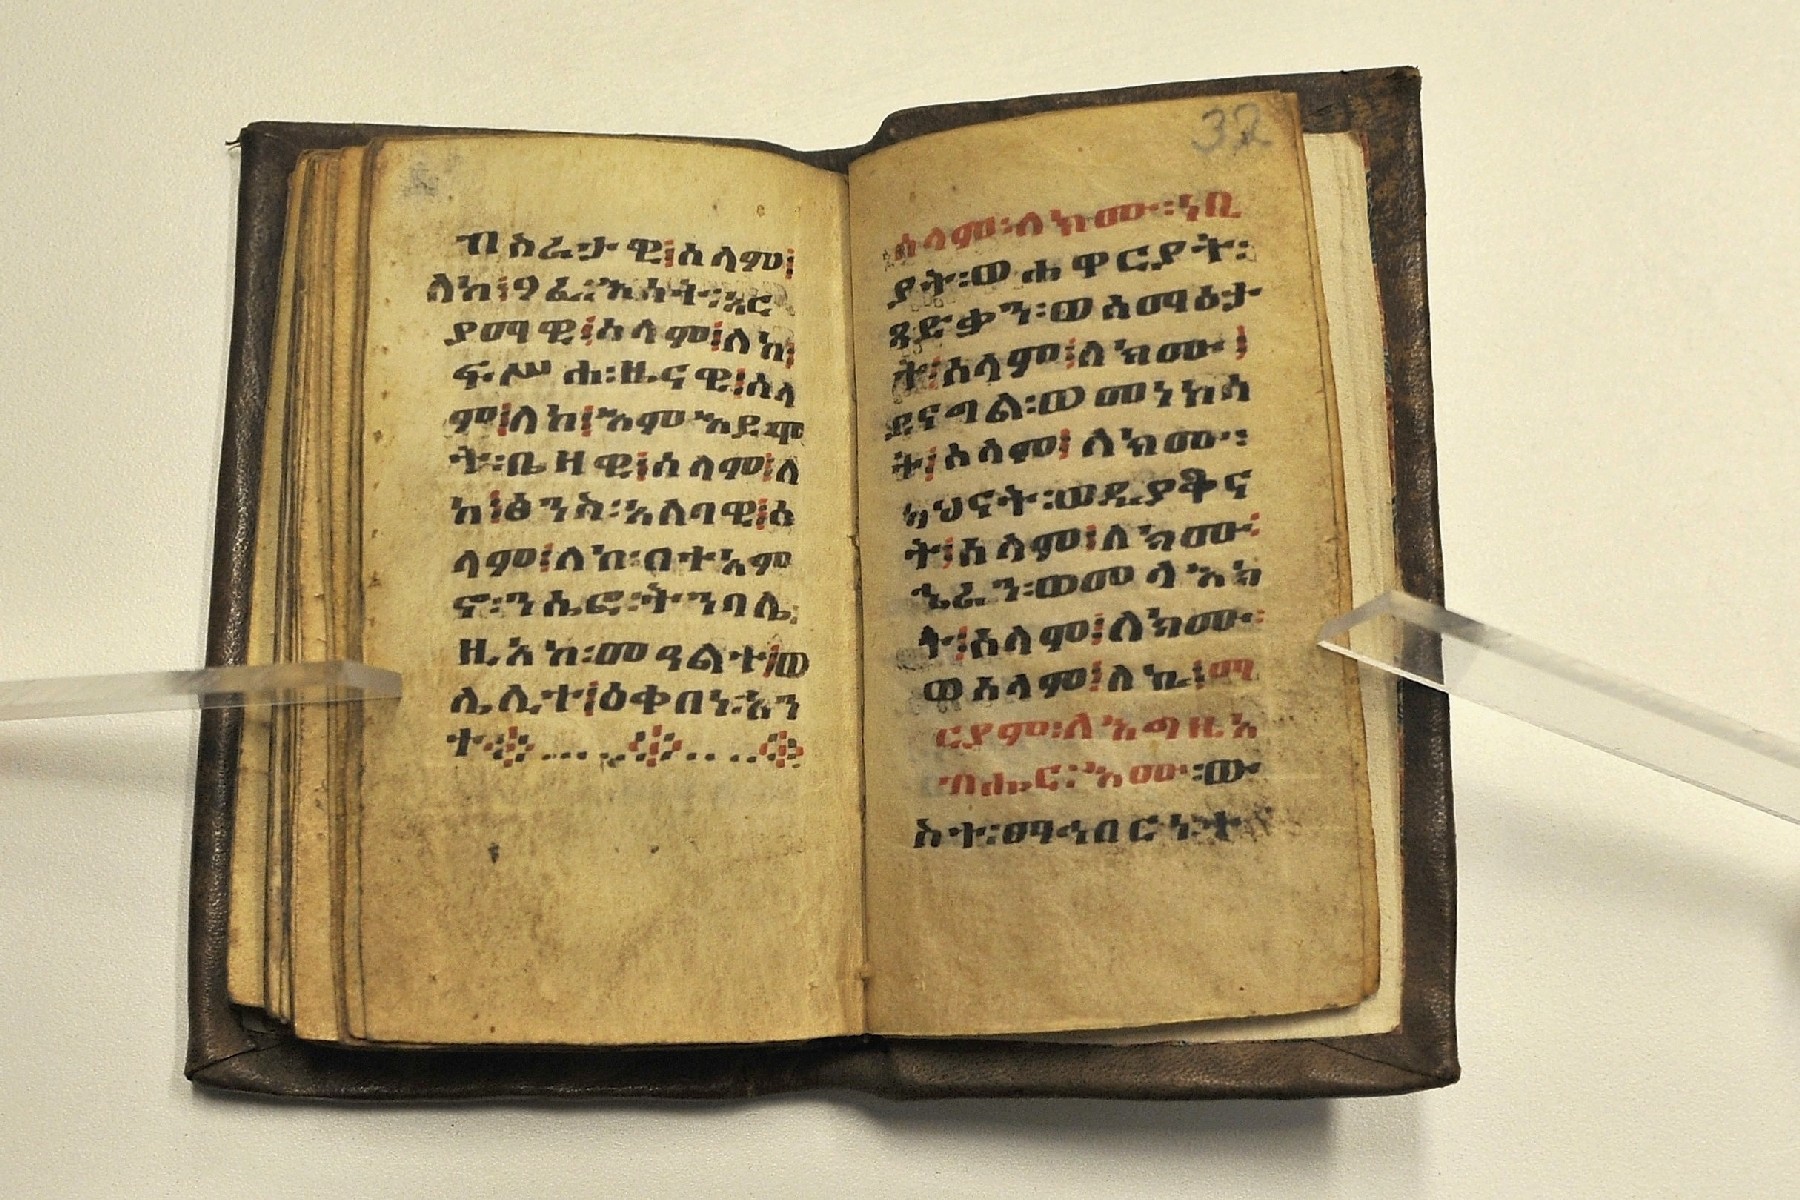 ብስራታዊ፤ሰላም፤
ለከ፤ዓፈ፡እሳት፡ኡር
ያማዊ፤ሰላም፤ለከ፤
ፍሥሐ፡ዜናዊ፤ሰላ
ም፤ለከ፤እም
ት፡ቤዛዊ፤ሰላም፤ለ
ከ፤ፅንስ፡አለባዊ፤ሰ
ላም፤ለከ፡በተአም
ኖ፡ንሴፎ፡ትንባሌ፡
ዚአከ፡መዓልተ፤ወ
ሌሊተ፤ዕቀበነ፡አን
ተ
32
ሰላም፡ለክሙ፡ነቢ
ያት፡ወሐዋርያት፡
ጻድቃን፡ወሰማዕታ
ት፤ሰላም፤ለክሙ፤
ደናግል፡ወመነኮሳ
ት፤ሰላም፤ለክሙ፡
ካህናት፡ወዲያቆና
ት፤ሰላም፤ለክሙ፡
ኄራን፡ወመላእክ
ት፤ሰላም፤ለክሙ፡
ወሰላም፤ለኪ፤ማ
ርያም፡ለእግዚአ
ብሔር፡እሙ፡ው
እተ፡ማኅበርነ፡